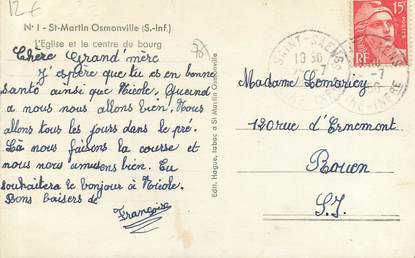 12 €
N° 1 - St-Martin Osmonville (S.-Inf.)
L'Eglise et le centre du bourg
Chère Grand'mère
J'espère que tu es en bonne
santé ainsi que Nicole. Quand
a nous nous allons bien. Nous
allons tous les jours dans le pré.
Là nous faisons la course et
nous nous amusons bien. Tu
souhaitera le bonjour à Nicole.
Bons baisers de
Françoise
Edit. Hague, tabac a St Martin Osmonville
SAINT-SAENS
13 30
15F
RF
Madame Lemaricey
120 rue d'Ernemont
Rouen
S.I.